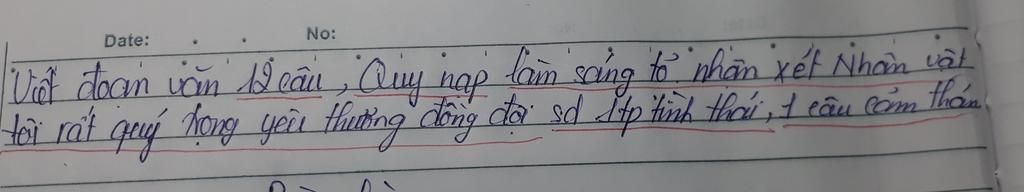 Date: . . No:
Viết đoạn văn 12 câu, Quy nạp làm sáng tỏ nhận xét Nhân vật
tôi rất quý trọng yêu thương đồng đội sd 1tp tình thái, 1 câu cảm thán